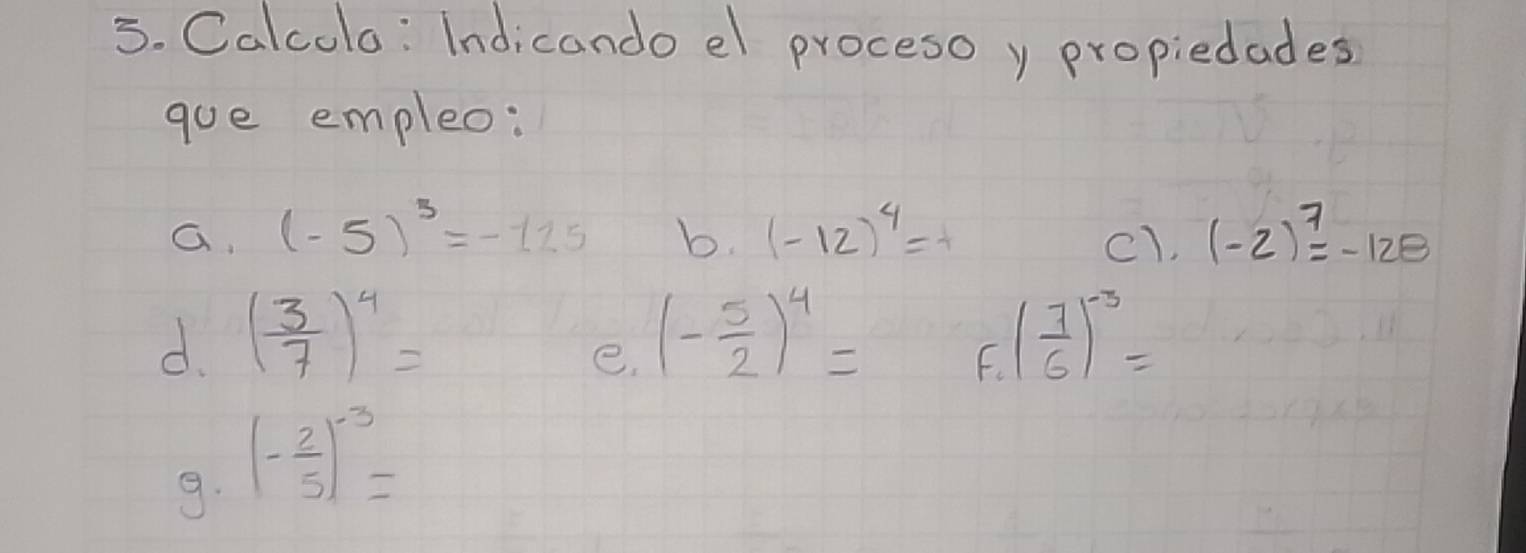 3. Calcula: Indicando el proceso y propiedades
que empleo:
a. (-5)³ = -125 b. (-12)⁴ = + c). (-2)⁷ = -128
d. (3/7)⁴ = e. (-5/2)⁴ = F. (7/6)⁻³ =
g. (-2/5)⁻³ =